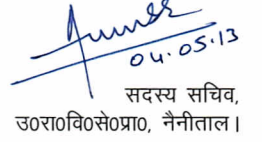 04.05.13
सदस्य सचिव,
उ0रा0वि0से0प्रा0, नैनीताल।